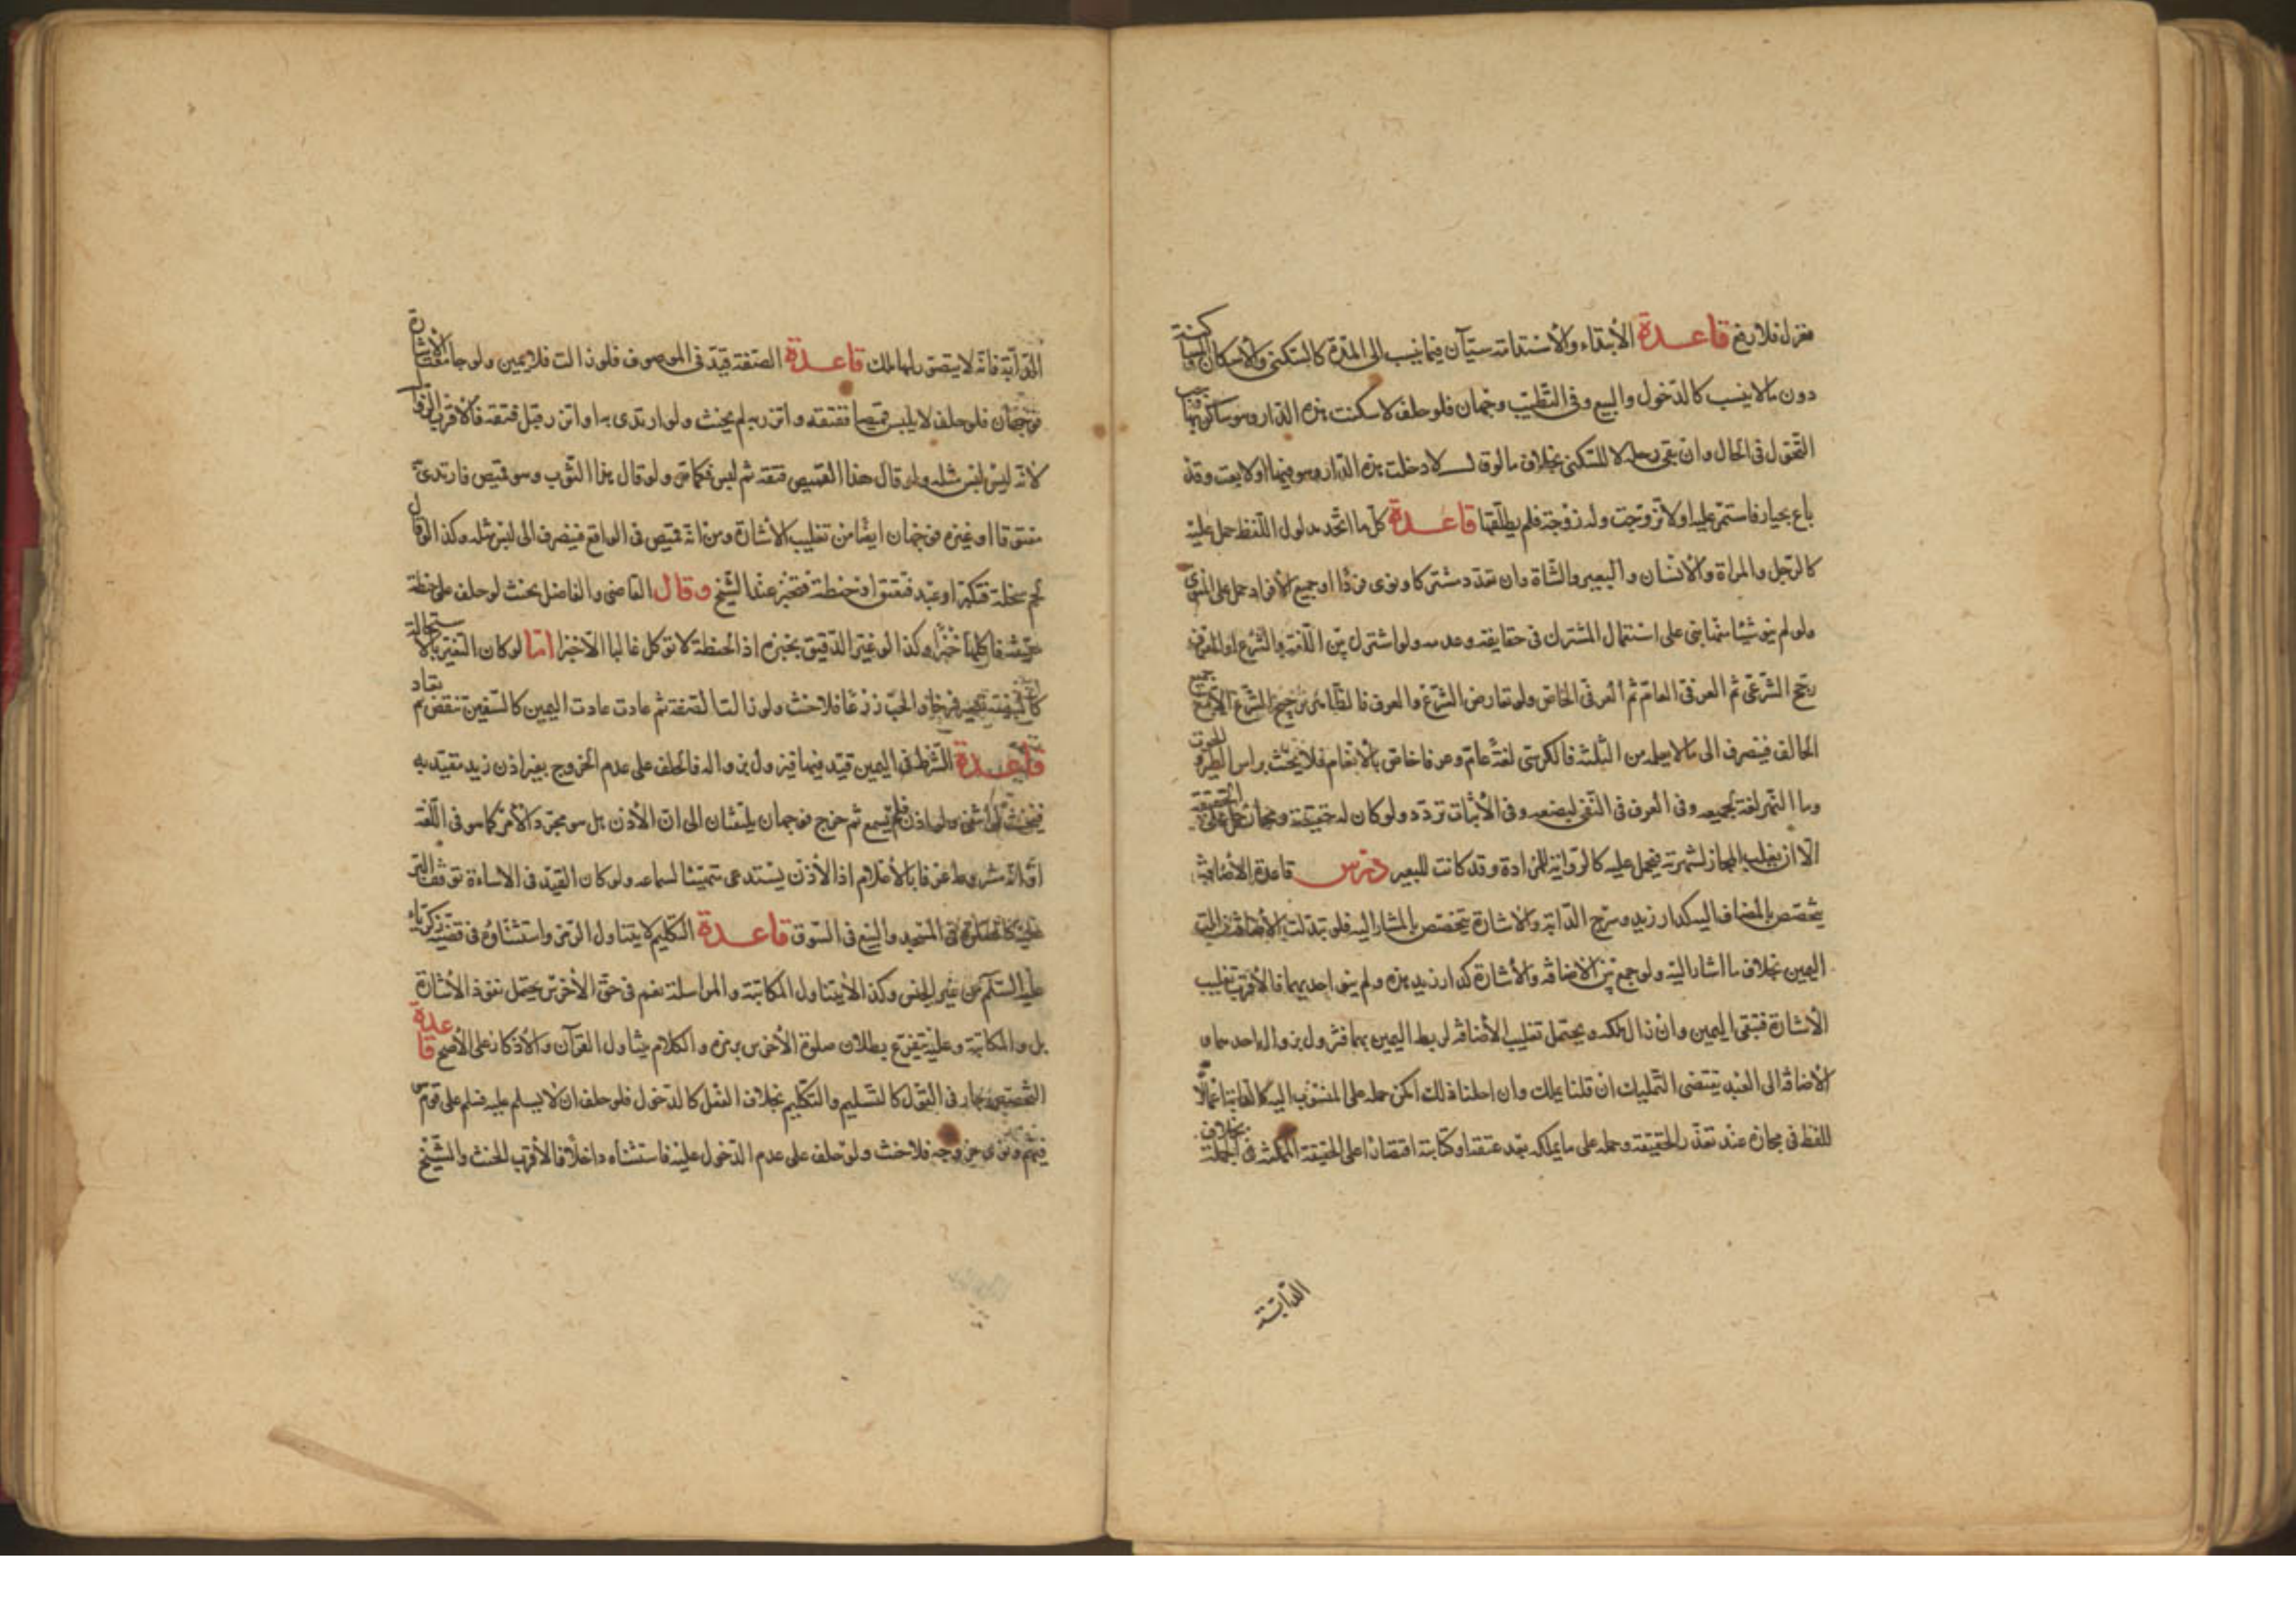 منزل فلان رفع قاعدة الابتداء والاستدامة سيان فيما ينسب الى المدة كالسكنى والاسكان والمساكنة
دون ما لا ينسب كالدخول والبيع وفى التطيب وجهان فلو حلف لا سكنت هذه الدار وهو ساكن بها وجب
التحول فى الحال وان بقى رحله لا للسكنى بخلاف ما لو قال لا دخلت هذه الدار وهو فيها او لا بعت وقد
باع بخيار فاستمر عليه او لا تزوجت وله زوجة فلم يطلقها قاعدة كل ما اتحد مدلول اللفظ حمل عليه
كالرجل والمراة والانسان والبعير والشاة وان تعدد مشتركا ونوى فردا او جميع الافراد حمل على المنوى
ولو لم ينو شيئا منها بنى على استعمال المشترك فى حقايقه وعدمه ولو اشترك بين اللغة والشرع او العرف
رجح الشرعى ثم العرفى العام ثم العرفى الخاص ولو تعارض الشرع والعرف فالظاهر ترجيح الشرع الا مع
الحالف فينصرف الى ما لا يحمله من الثلثة فالكرسى لغة عام وعرفا خاص بالانعام فلا يحنث براس الطير والحوت
وما الثمر لغة لجميعه وفى العرف فى النفى لبضعه وفى الاثبات تردد ولو كان له حقيقة ومجاز حمل على الحقيقة
الا ان يغلب المجاز لشهرته فيحمل عليه كالرواية للمزادة وقد كانت للبعير درس قاعدة الاضافة
يتخصص بالمضاف اليه كدار زيد وسرج الدابة والاشارة يتخصص بالمشار اليه فلو تبدلت الاضافة زالت
اليمين بخلاف ما اشار اليه ولو جمع بين الاضافة والاشارة كدار زيد هذه ولم ينو احديهما فالاقرب تغليب
الاشارة فتبقى اليمين وان زال ملكه ويحتمل تغليب الاضافة لربط اليمين بهما فيزول بزوال احدهما و
الاضافة الى العبد يقتضى التمليك ان قلنا يملك وان احلنا ذلك امكن حمله على المنسوب اليه كالغاية اعمالا
للفظ فى مجازه عند تعذر الحقيقة وحمله على ما يملكه بعد عتقه او كتابة اقتصارا على الحقيقة الممكنة فى الجملة بخلاف
الدابة
الدابة فانه لا يتصور لها ملك قاعدة الصفة قيد فى الموصوف فلو زالت فلا يمين ولو جامعت الاشارة
فوجهان فلو حلف لا يلبس قميصا ففتقه واتزر به لم يحنث ولو ارتدى به او اتزر قبل فتقه فالاقرب
لانه ليس لبس مثله ولو قال هذا القميص فتقه ثم لبس فكما مر ولو قال هذا الثوب وهو قميص فارتدى
مفتوقا او غيره فوجهان ايضا من تغليب الاشارة ومن انه قميص فى الواقع فينصرف الى لبس مثله وكذا لو قال
لحم سخلة فتكبر او عبد فتعتق او حنطة فتخبز عند الشيخ وقال القاضى والفاضل يحنث لو حلف على حنطة
معينة فاكلها خبزا وكذا لو غير الدقيق بخبزه اذ الحنطة لا توكل غالبا الا خبزا اما لو كان التغير بالاستحالة
كالبيضة تصير فرخا والحب زرعا فلا حنث ولو زالت الصفة ثم عادت عادت اليمين كالسفينة تنقض ثم تعاد
قاعدة الشرط فى اليمين قيد فيها فيزول بزواله فالحلف على عدم الخروج بغير اذن زيد مقيد به
ولو اذن فلم يسمع ثم خرج فوجهان يلتفتان الى ان الاذن هل هو مجرد الامر كما هو فى اللغة
او انه مشروط عرفا بالاعلام اذ الاذن يستدعى تثبيتا لسماعه ولو كان القيد فى الاساءة توقف البر
عليه كالصلوة فى المسجد والبيع فى السوق قاعدة التكليم لا يتناول الرمز واستثناؤه فى قصة زكرياء
عليه السلم من غير الجنس وكذا لا يتناول المكاتبة والمراسلة نعم فى حق الاخرس يحتمل نفوذ الاشارة
بل والمكاتبة وعليه يتفرع بطلان صلوة الاخرس برمزه والكلام يتناول القرآن والاذكار على الاصح قاعدة
التخصيص جار فى القول كالتسليم والتكليم بخلاف الفعل كالدخول فلو حلف ان لا يسلم عليه فسلم على قوم هو
فيهم ونوى خروجه فلا حنث ولو حلف على عدم الدخول عليه فاستثناه داخلا فالاقرب الحنث والشيخ